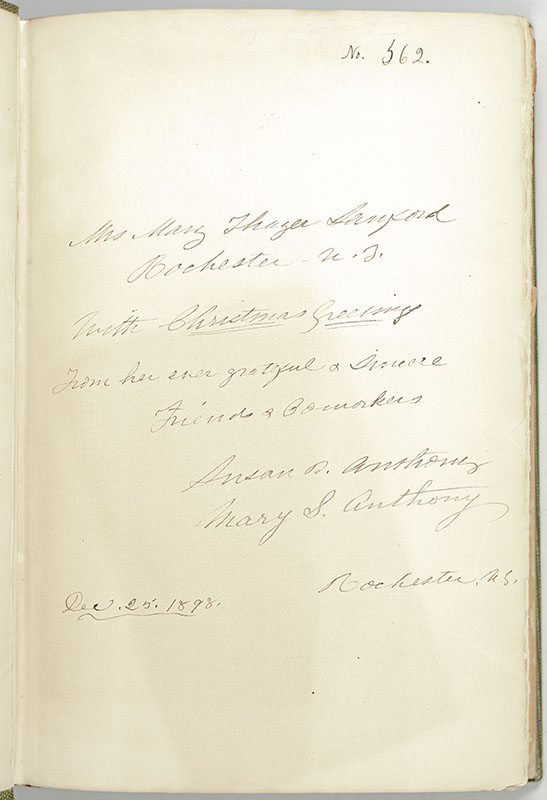 No. 562.
Mrs Mary Thayer Sanford
Rochester - N. Y.
With Christmas Greetings
From her ever grateful & sincere
Friends & Coworkers
Susan B. Anthony
Mary S. Anthony
Rochester, N.Y.
Dec. 25. 1898.